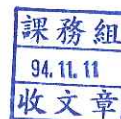 課務組
94.11.11
收文章